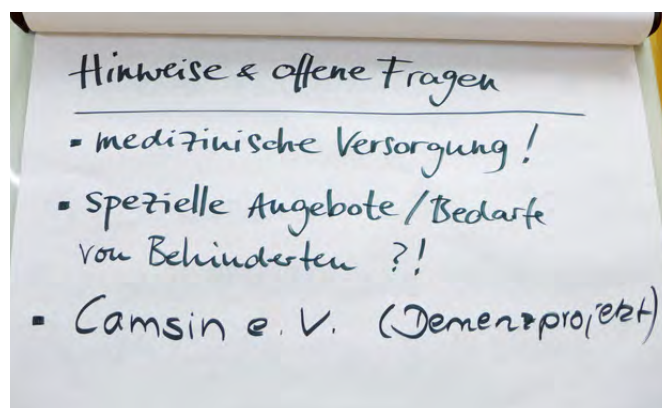 Hinweise & offene Fragen
- medizinische Versorgung!
- spezielle Angebote/Bedarfe
von Behinderten ?!
- Camsin e.V. (Demenzprojekt)